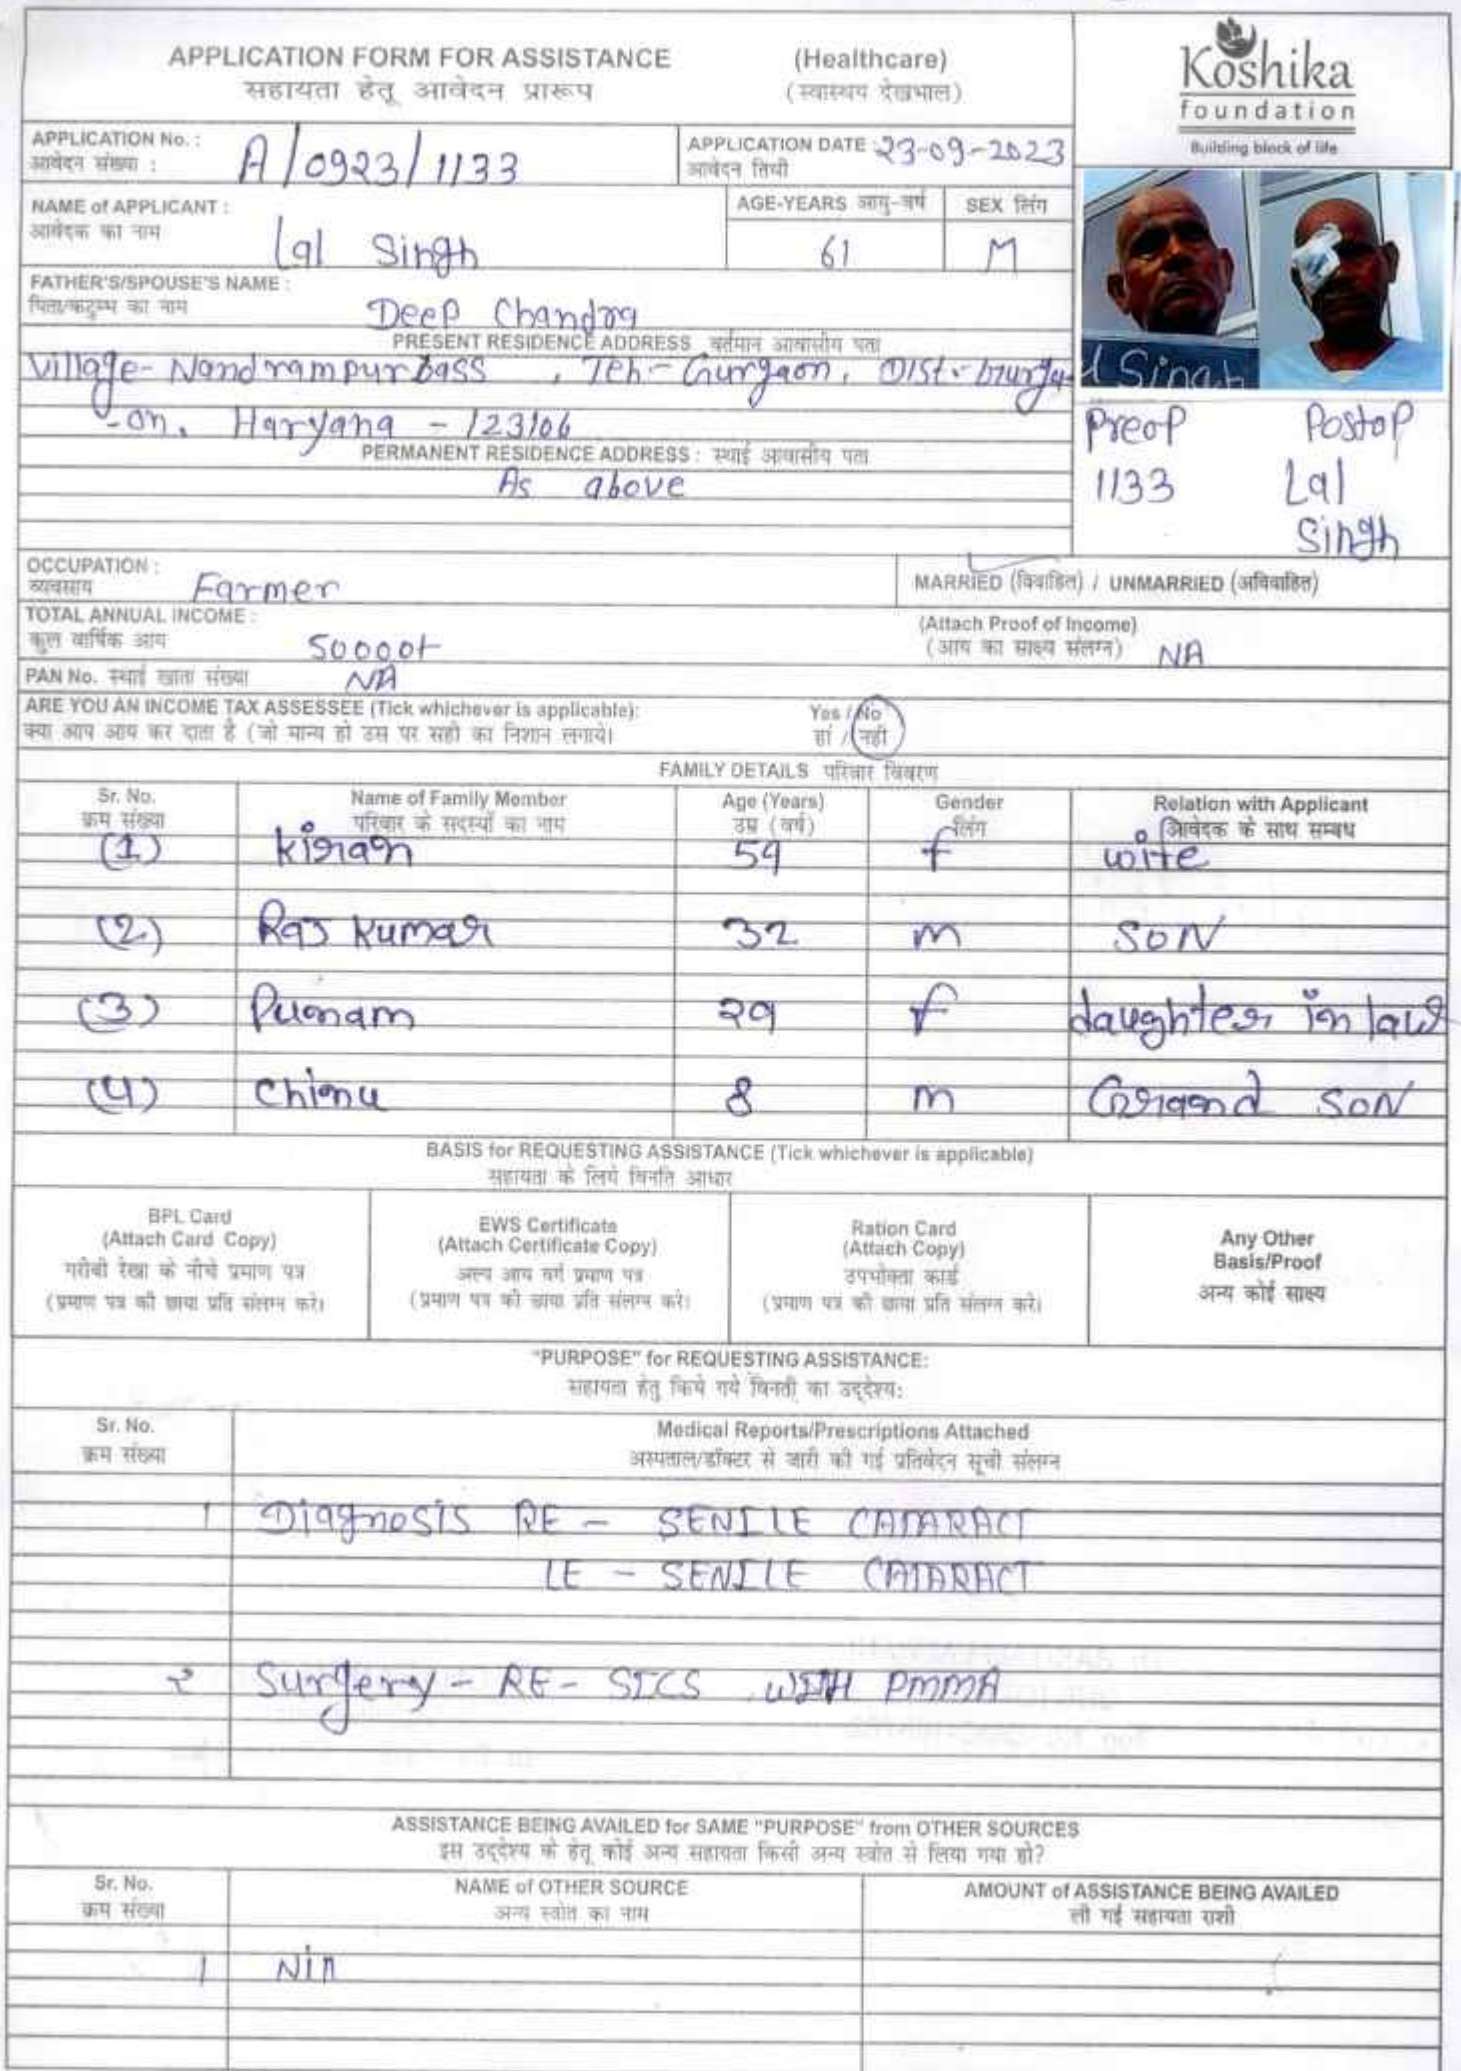 APPLICATION FORM FOR ASSISTANCE (Healthcare)
सहायता हेतू आवेदन प्रारूप (स्वास्थय देखभाल)
Koshika
foundation
Building block of life
APPLICATION No. : A/0923/1133
आवेदन संख्या :
APPLICATION DATE 23-09-2023
आवेदन तिथी
NAME of APPLICANT : Lal Singh
आवेदक का नाम
AGE-YEARS आयु-वर्ष 61
SEX लिंग M
FATHER'S/SPOUSE'S NAME : Deep Chandra
पिता/कटुम्ब का नाम
PRESENT RESIDENCE ADDRESS वर्तमान आवासीय पता
Village- Nandrampurbass , Teh- Gurgaon, Dist- Gurga
-on, Haryana - 123106
PERMANENT RESIDENCE ADDRESS : स्थाई आवासीय पता
As above
l Singh
Preop Postop
1133 Lal
Singh
OCCUPATION : Farmer
व्यवसाय
MARRIED (विवाहित) / UNMARRIED (अविवाहित)
TOTAL ANNUAL INCOME :
कुल वार्षिक आय 50000/-
(Attach Proof of Income)
(आय का साक्ष्य संलग्न) NA
PAN No. स्थाई खाता संख्या NA
ARE YOU AN INCOME TAX ASSESSEE (Tick whichever is applicable): Yes / No
क्या आप आय कर दाता है (जो मान्य हो उस पर सही का निशान लगाये। हां / नही
FAMILY DETAILS परिवार विवरण
Sr. No. Name of Family Member Age (Years) Gender Relation with Applicant
क्रम संख्या परिवार के सदस्यों का नाम उम्र (वर्ष) लिंग आवेदक के साथ सम्बध
(1) Kiran 59 f wife
(2) Raj Kumar 32 m SON
(3) Punam 29 f daughter in law
(4) Chinu 8 m Grand SON
BASIS for REQUESTING ASSISTANCE (Tick whichever is applicable)
सहायता के लिये विनति आधार
BPL Card
(Attach Card Copy)
गरीबी रेखा के नीचे प्रमाण पत्र
(प्रमाण पत्र की छाया प्रति संलग्न करे।
EWS Certificate
(Attach Certificate Copy)
अल्प आय वर्ग प्रमाण पत्र
(प्रमाण पत्र की छाया प्रति संलग्न करे।
Ration Card
(Attach Copy)
उपभोक्ता कार्ड
(प्रमाण पत्र की छाया प्रति संलग्न करे।
Any Other
Basis/Proof
अन्य कोई साक्ष्य
"PURPOSE" for REQUESTING ASSISTANCE:
सहायता हेतु किये गये विनती का उद्देश्य:
Sr. No. Medical Reports/Prescriptions Attached
क्रम संख्या अस्पताल/डॉक्टर से जारी की गई प्रतिवेदन सूची संलग्न
1 Diagnosis RE - SENILE CATARACT
LE - SENILE CATARACT
2 Surgery - RE - SICS WITH PMMA
ASSISTANCE BEING AVAILED for SAME "PURPOSE" from OTHER SOURCES
इस उद्देश्य के हेतू कोई अन्य सहायता किसी अन्य स्त्रोत से लिया गया हो?
Sr. No. NAME of OTHER SOURCE AMOUNT of ASSISTANCE BEING AVAILED
क्रम संख्या अन्य स्त्रोत का नाम ली गई सहायता राशी
1 Nill